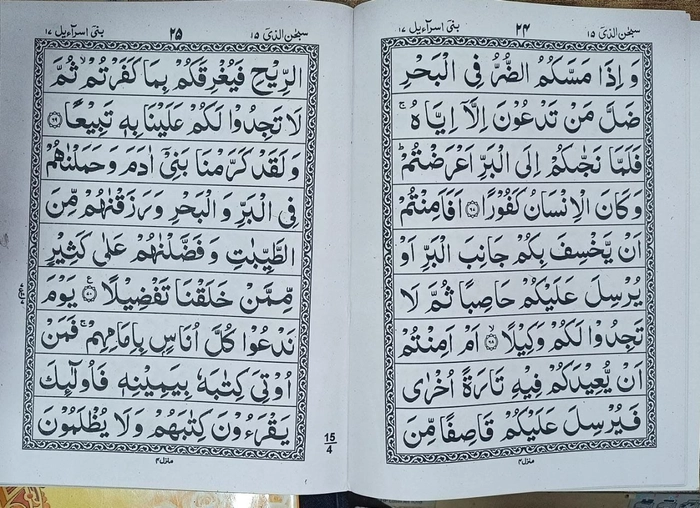 سبحٰن الذیٓ ۱۵
۲۴
بنیٓ اسرآءیل ۱۷
وَ اِذَا مَسَّكُمُ الضُّرُّ فِی الْبَحْرِ
ضَلَّ مَنْ تَدْعُوْنَ اِلَّاۤ اِیَّاهُ ۚ
فَلَمَّا نَجّٰىكُمْ اِلَى الْبَرِّ اَعْرَضْتُمْ ؕ
وَ كَانَ الْاِنْسَانُ كَفُوْرًا ۝۶۷ اَفَاَمِنْتُمْ
اَنْ یَّخْسِفَ بِكُمْ جَانِبَ الْبَرِّ اَوْ
یُرْسِلَ عَلَیْكُمْ حَاصِبًا ثُمَّ لَا
تَجِدُوْا لَكُمْ وَكِیْلًا ۝۶۸ۙ اَمْ اَمِنْتُمْ
اَنْ یُّعِیْدَكُمْ فِیْهِ تَارَةً اُخْرٰى
فَیُرْسِلَ عَلَیْكُمْ قَاصِفًا مِّنَ
منزل ۴
سبحٰن الذیٓ ۱۵
۲۵
بنیٓ اسرآءیل ۱۷
الرِّیْحِ فَیُغْرِقَكُمْ بِمَا كَفَرْتُمْ ۙ ثُمَّ
لَا تَجِدُوْا لَكُمْ عَلَیْنَا بِهٖ تَبِیْعًا ۝۶۹
وَ لَقَدْ كَرَّمْنَا بَنِیْۤ اٰدَمَ وَ حَمَلْنٰهُمْ
فِی الْبَرِّ وَ الْبَحْرِ وَ رَزَقْنٰهُمْ مِّنَ
الطَّیِّبٰتِ وَ فَضَّلْنٰهُمْ عَلٰى كَثِیْرٍ
مِّمَّنْ خَلَقْنَا تَفْضِیْلًا ۝۷۰ۧ یَوْمَ
نَدْعُوْا كُلَّ اُنَاسٍۭ بِاِمَامِهِمْ ۚ فَمَنْ
اُوْتِیَ كِتٰبَهٗ بِیَمِیْنِهٖ فَاُولٰٓىِٕكَ
یَقْرَءُوْنَ كِتٰبَهُمْ وَ لَا یُظْلَمُوْنَ
منزل ۴
15
4